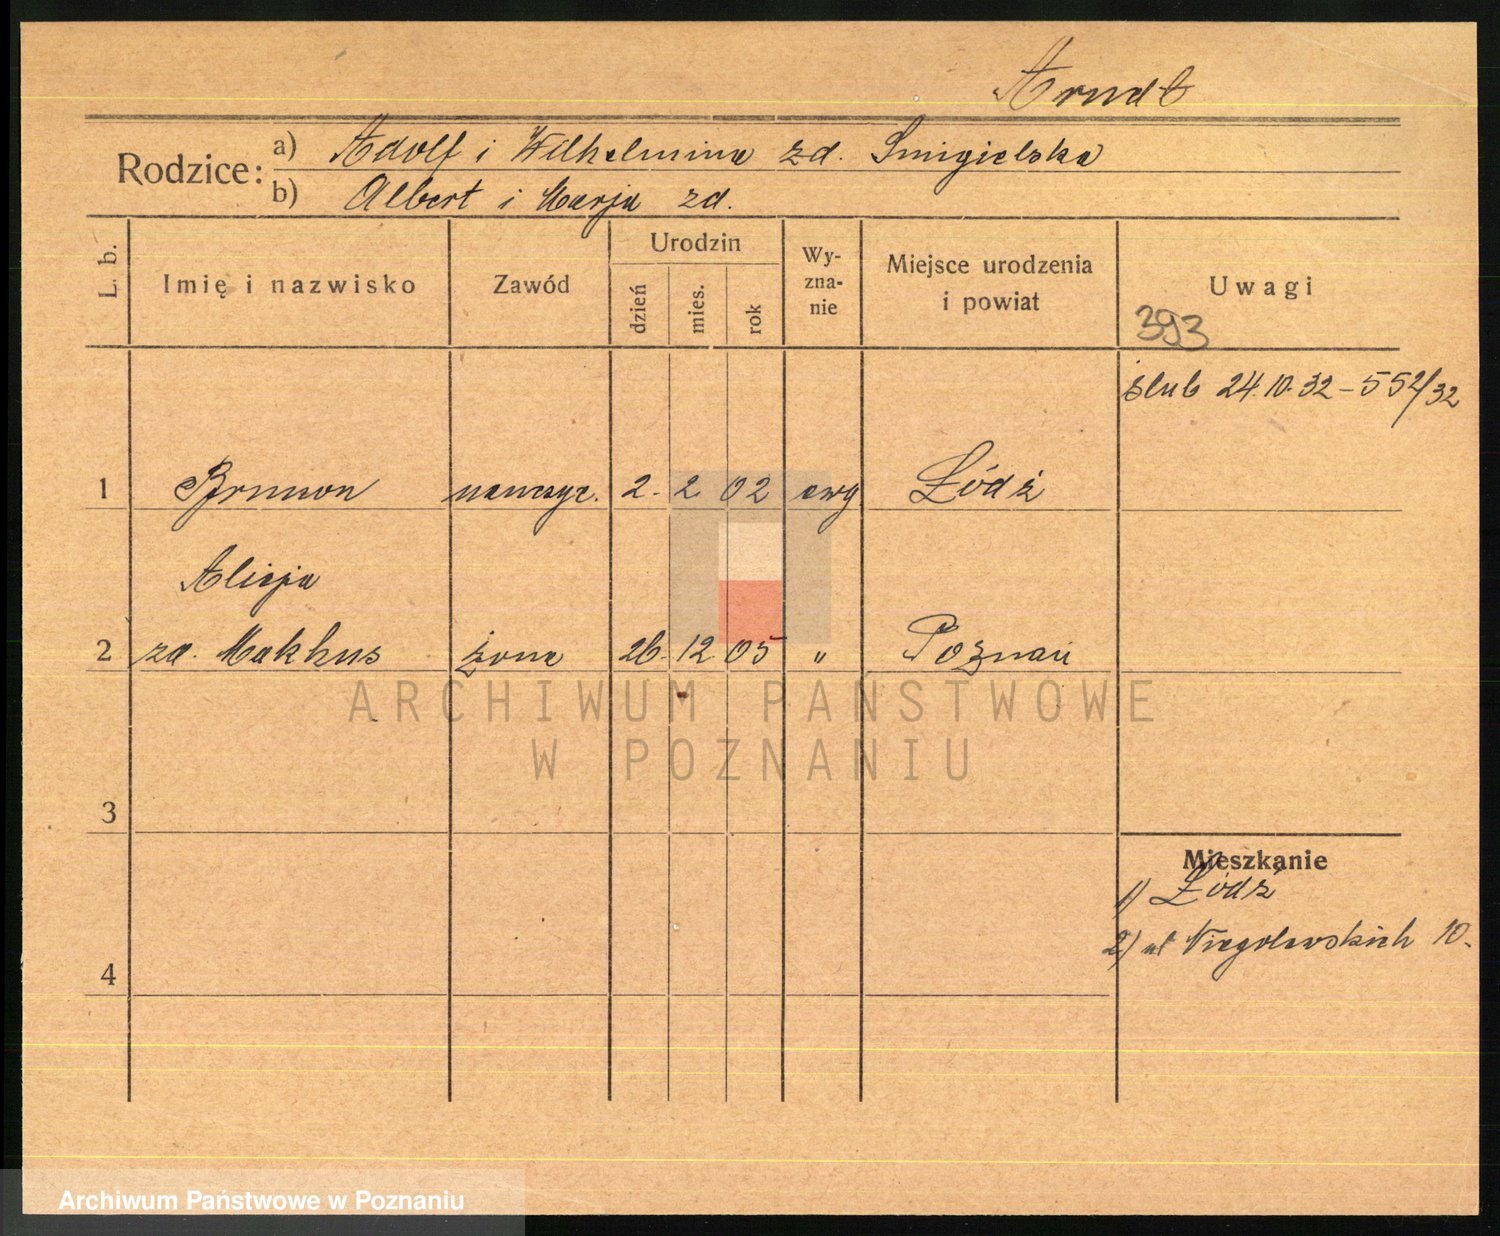 Arndt
Rodzice:
a) Adolf i Wilhelmina zd. Smigielska
b) Albert i Marja zd.
L. b.
Imię i nazwisko
Zawód
Urodzin
dzień
mies.
rok
Wy-
zna-
nie
Miejsce urodzenia
i powiat
Uwagi
393
ślub 24.10.32 – 552/32
1 Brunon nauczyc. 2. 2 02 ewg Łódź
Alicja
2 zd. Makkus żona 26. 12 05 " Poznań
ARCHIWUM PAŃSTWOWE
W POZNANIU
3
Mieszkanie
1) Łódź
2) ul Niegolewskich 10.
4
Archiwum Państwowe w Poznaniu